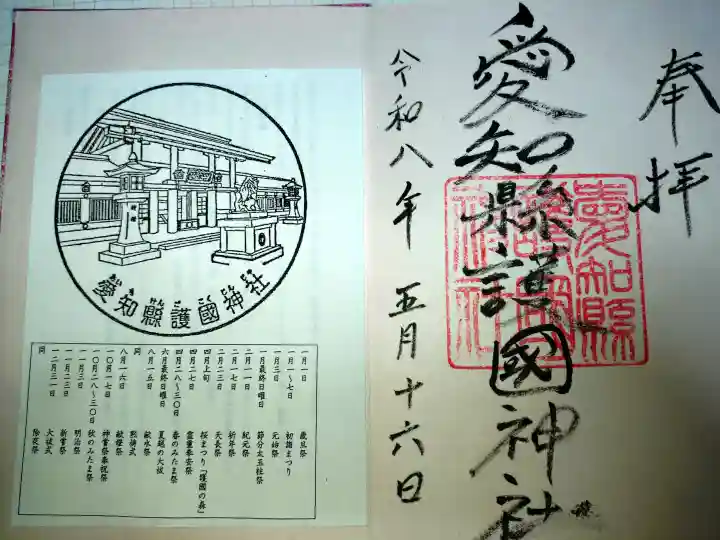 奉拝
愛知縣護國神社
愛知縣護國神社
令和八年五月十六日
愛知縣護國神社
あいちけんごこくじんじゃ
一月一日 歳旦祭
一月一~七日 初詣まつり
一月三日 元始祭
一月最終日曜日 節分太玉柱祭
二月一一日 紀元祭
二月一七日 祈年祭
二月二三日 天長祭
四月上旬 桜まつり「護國の森」
四月二七日 霊璽奉安祭
四月二八~三〇日 春のみたま祭
六月最終日曜日 夏越の大祓
八月一五日 献水祭
同 烈悼式
八月一六日 献燈祭
一〇月一七日 神嘗祭奉祝祭
一〇月二八~三〇日 秋のみたま祭
一一月三日 明治祭
一一月二三日 新嘗祭
一二月三一日 大祓式
同 除夜祭